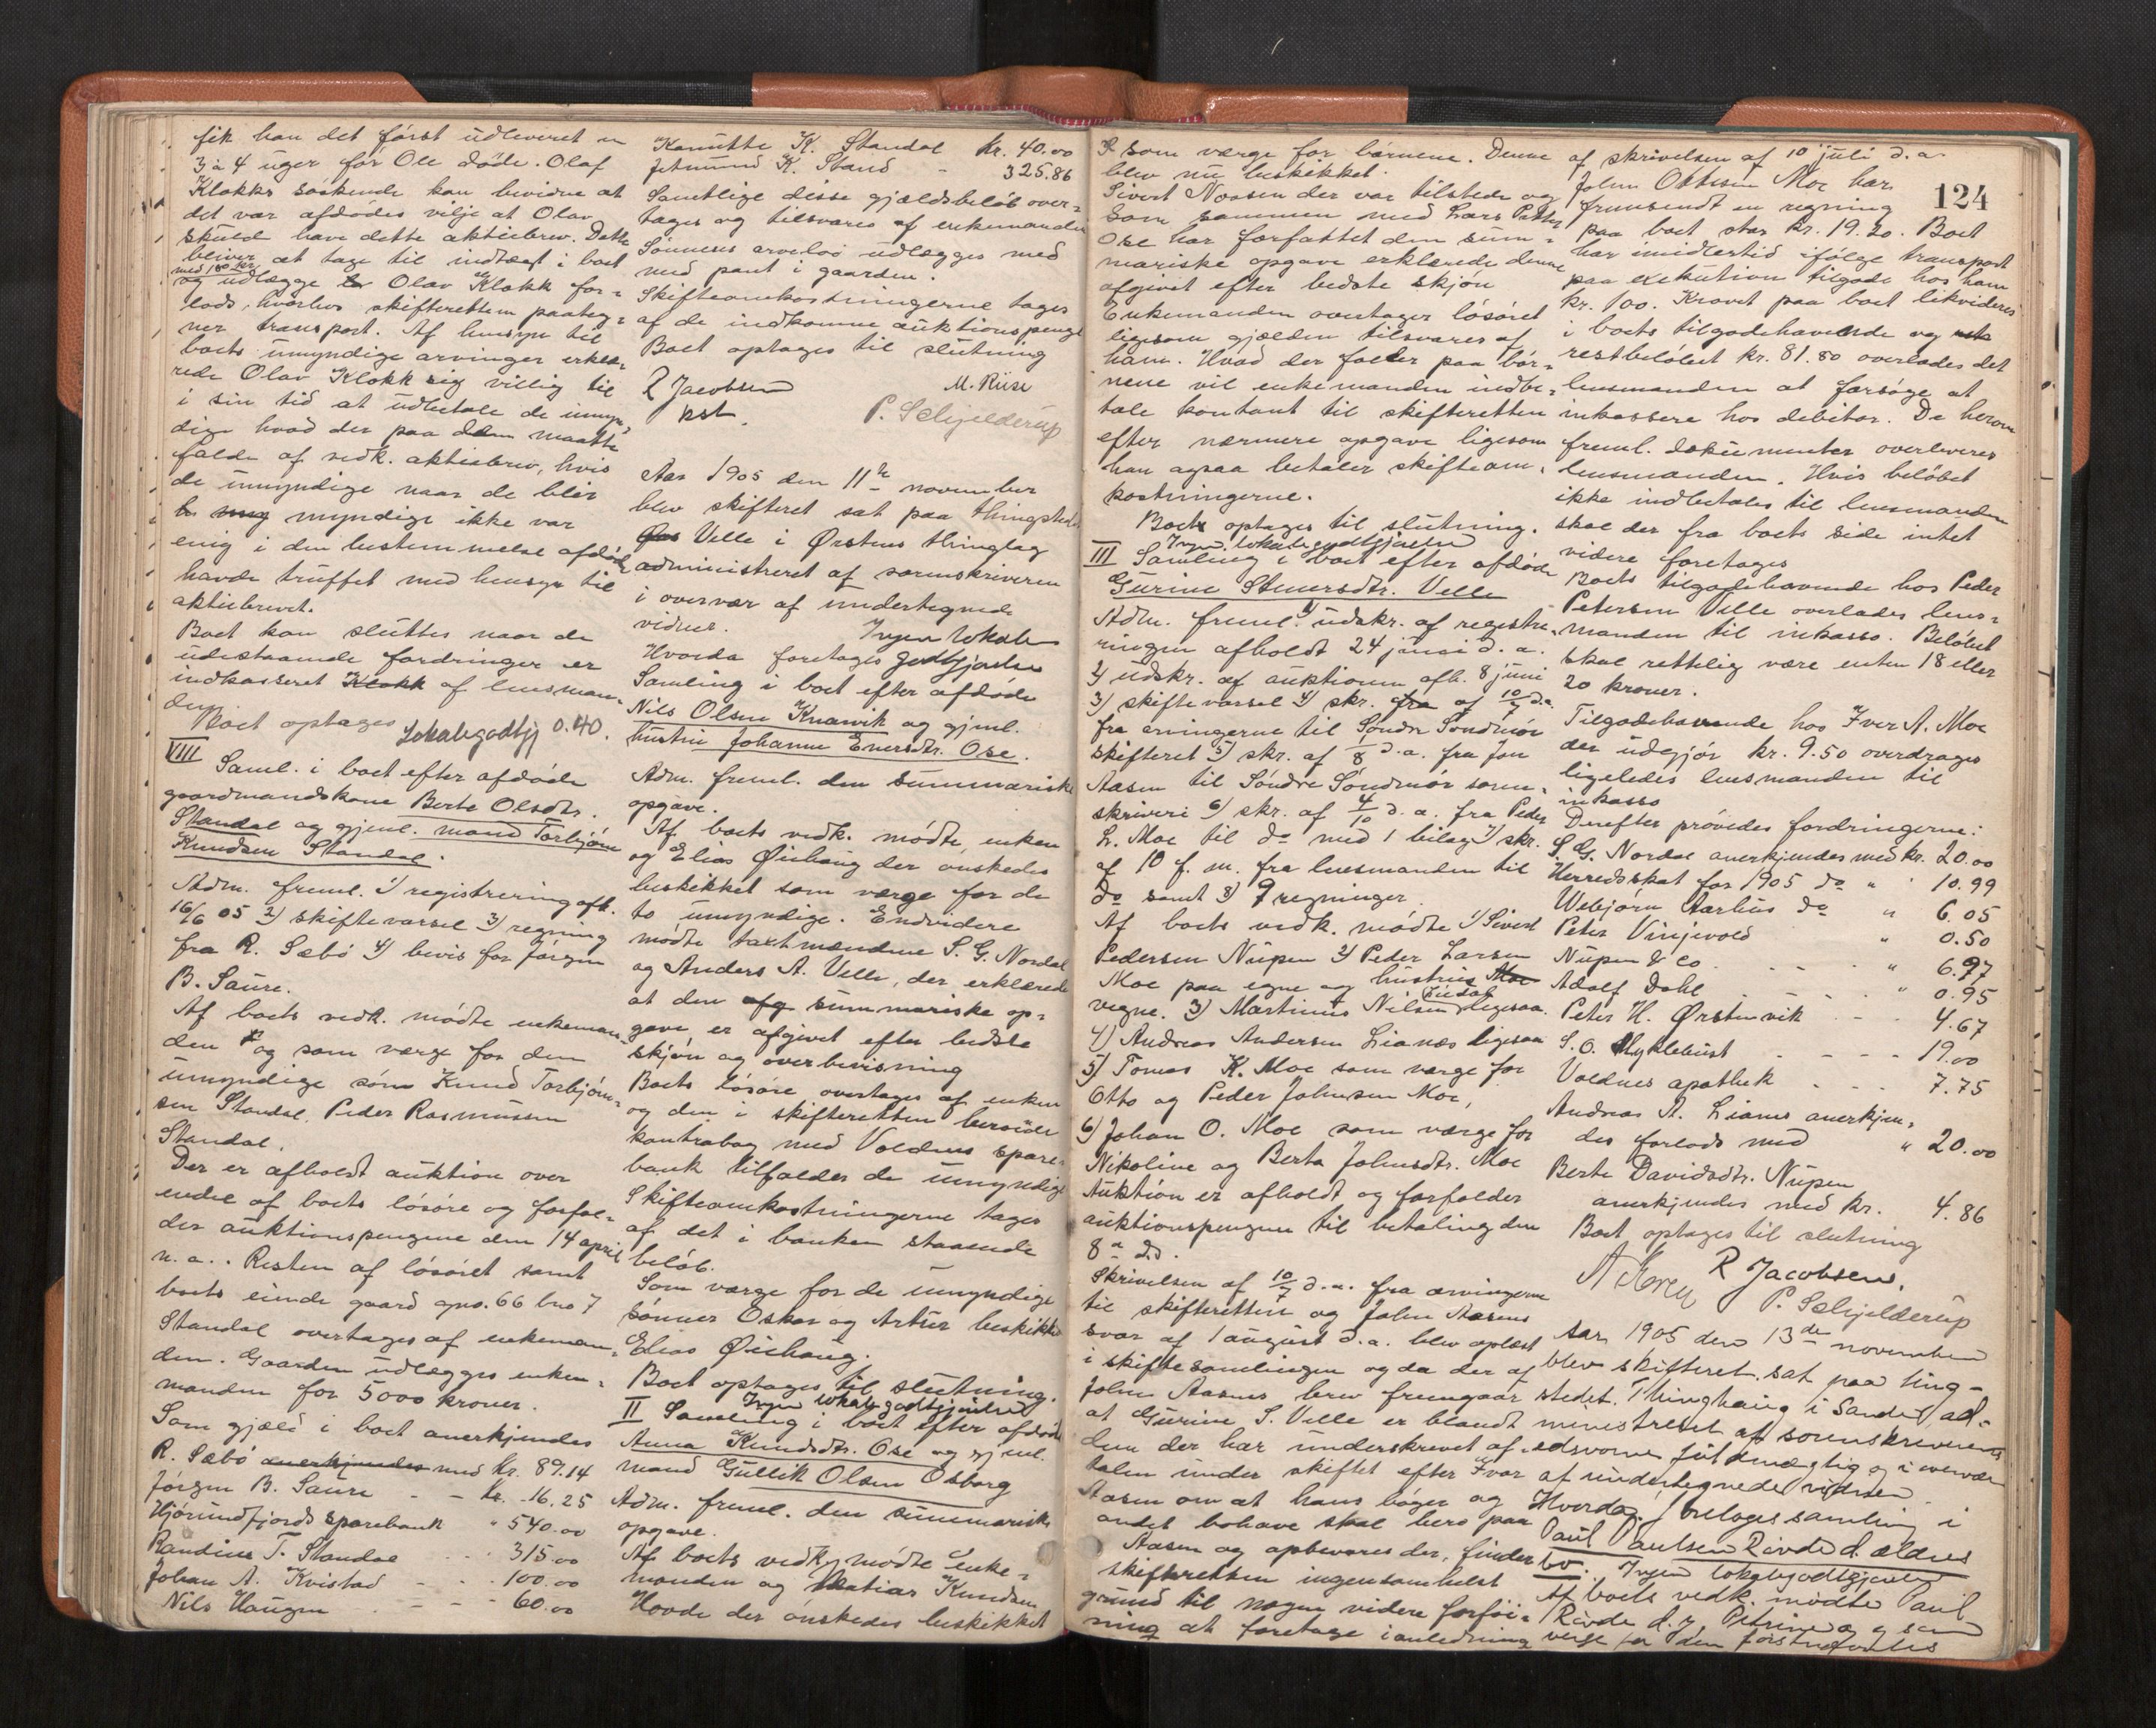 fik han det först udleveret en
3 à 4 uger før Ole döde. Olaf
Klokks söskende kan bevidne at
det var afdödes vilje at Olav
skuld have dette aktiebrev. Dette
bliver at tage til indtægt i boet
med 180 kr.
og udlægge Olav Klokk for-
lods, hvorhos skifteretten paateg-
ner transport. Af hensyn til
boets umyndige arvinger erklæ-
rede Olav Klokk sig villig til
i sin tid at udbetale de umyn-
dige hvad der paa dem maatte
falde af vedk. aktiebrev, hvis
de umyndige naar de blir
myndige ikke var
enig i den bestemmelse afdöde
havde truffet med hensyn til
aktiebrevet.
Boet kan sluttes naar de
udestaaende fordringer er
indkasseret Klokk af lensman-
den.
Boet optages Lokalegodtgj 0.40.
VIII Saml. i boet efter afdöde
gaardmandskone Berte Olsdtr.
Standal og gjenl. mand Torbjörn
Knudsen Standal.
Adm. freml. 1) registrering afh.
16/6 05 2) skiftevarsel 3) regning
fra R. Sæbö 4) bevis for Jörgen
B. Saure.
Af boets vedk. mödte enkeman-
den og som værge for den
umyndige sön Knud Torbjörn-
sen Standal, Peder Rasmussen
Standal.
Der er afholdt auktion over
endel af boets lösöre og forfal-
der auktionspengene den 14 april
n. a.. Resten af lösöret samt
boets eiende gaard gno. 66 bno 7
Standal overtages af enkeman-
den. Gaarden udlægges enke-
manden for 5000 kroner.
Som gjæld i boet anerkjendes
R. Sæbö anerkjendes med kr. 89.14
Jörgen B. Saure - - kr. 16.25
Hjörundfjords sparebank " 540.00
Randine T. Standal - - 315.00
Johan A. Kvistad - - - 100.00
Nils Haugen - - - 60.00
Kanutte K. Standal kr. 40.00
Jetmund K. Stand - 325.86
Samtlige disse gjældsbelöb over-
tages og tilsvares af enkemanden
Sönnens arvelod udlægges med
med pant i gaarden.
Skifteomkostningerne tages
af de indkomne auktionspenge
Boet optages til slutning
R Jacobsen M. Riise
kst. P. Schjelderup
Aar 1905 den 11te november
blev skifteret sat paa thingsted
Velle i Ørstens thinglag
administreret af sorenskriveren
i overvær af undertegnede
vidner. Ingen lokale
Hvorda foretages godtgjörelse
Samling i boet efter afdöde
Nils Olsen Knarvik og gjenl.
hustru Johanne Enersdtr. Ose.
Adm. freml. den summariske
opgave.
Af boets vedk. mödte enken
og Elias Øiehaug der önskedes
beskikket som værge for de
to umyndige. Endvidere
mödte taxtmændene S. G. Nordal
og Anders A. Velle, der erklærede
at den afg summariske op-
gave er afgivet efter bedste
skjön og overbevisning
Boets lösöre overtages af enken
og den i skifteretten beroende
kontrabog med Voldens spare-
bank tilfalder de umyndige
Skifteomkostningerne tages
af det i banken staaende
belöb.
Som værge for de umyndige
sönner Oskar og Artur beskikkes
Elias Øiehaug.
Boet optages til slutning.
Ingen lokalegodtgjörelse
II Samling i boet efter afdöde
Anna Knudsdtr. Ose og gjenl.
mand Gullik Olsen Osborg
Adm. freml. den summariske
opgave.
Af boets vedk. mödte enke-
manden og Matias Knudsen
Hovde der önskedes beskikket
124
som værge for börnene. Denne
blev nu beskikket.
Sivert Noasen der var tilstede og
som sammen med Lars Petter
Ose har forfattet den sum-
mariske opgave erklærede denne
afgivet efter bedste skjön
Enkemanden overtager lösöret
ligesom gjælden tilsvares af
ham. Hvad der falder paa bör-
nene vil enkemanden indbe-
tale kontant til skifteretten
efter nærmere opgave ligesom
han ogsaa betaler skifteom-
kostningerne.
Boets optages til slutning.
Ingen lokalegodtgjörelse
III Samling i boet efter afdöde
Gurine Steuersdtr. Velle
Adm. freml. 1) udskr. af registre-
ringen afholdt 24 januar d. a.
2) udskr. af auktionen afh. 8 juni
3) skiftevarsel 4) skr. fra af 10/7 d.a.
fra arvingerne til Söndre Söndmör
skifteret 5) skr. af 1/8 d. a. fra Jon
Aasen til Söndre Söndmör soren-
skriveri 6) skr. af 4/10 d. a. fra Peder
L. Moe til do med 1 bilag 7) skr.
af 10 f. m. fra lensmanden til
do samt 8) 9 regninger
Af boets vedk. mödte 1) Sivert
Pedersen Nupen 2) Peder Larsen
Moe paa egne og hustrus Moe
vegne. 3) Martinus Nilsen ligesaa.
4) Andreas Andersen Lianes ligesaa
5) Tomas K. Moe som værge for
Otto og Peder Johnsen Moe,
6) Johan O. Moe som værge for
Nikoline og Berta Johnsdtr. Moe
Auktion er afholdt og forfalder
auktionspengene til betaling den
8de ds.
Skrivelsen af 10/7 d. a. fra arvingerne
til skifteretten og John Aasens
svar af 1 august d. a. blev oplæst
i skiftesamlingen og da der af
John Aasens brev fremgaar
at Gurine S. Velle er blandt
dem der har underskrevet af-
talen under skiftet efter Ivar
Aasen om at hans böger og
andet bohave skal bero paa
Aasen og opbevares der, finder
skifteretten ingensomhelst
grund til nogen videre forföi-
ning at foretage i anledning
af skrivelsen af 10 juli d. a.
John Ottesen Moe har
fremsendt en regning
paa boet stor kr. 19.20. Boet
har imidlertid ifölge transport
paa exekution tilgode hos ham
kr. 100. Kravet paa boet likvideres
i boets tilgodehavende og
restbelöbet kr. 81.80 overlades det
lensmanden at forsöge at
inkassere hos debitor. De herom
freml. dokumenter overleveres
lensmanden. Hvis belöbet
ikke indbetales til lensmanden
skal der fra boets side intet
videre foretages
Boets tilgodehavende hos Peder
Petersen Velle overlades lens-
manden til inkasso. Belöbet
skal rettelig være enten 18 eller
20 kroner.
Tilgodehavende hos Iver A. Moe
der udgjör kr. 9.50 overdrages
ligeledes lensmanden til
inkasso
Derefter prövedes fordringerne:
S. G. Nordal anerkjendes med kr. 20.00
Herredsskat for 1905 do " 10.99
Webjörn Aarhus do " 6.05
Peter Vinjevold " 0.50
Nupen & Co. - - - " 6.97
Adolf Dahl - - - " 0.95
Peter H. Ørstenvik - - - 4.67
S. O. Myklebust - - - - 19.00
Voldens apothek - - - 7.75
Andreas A. Lianes anerkjen-
des forlods med " 20.00
Berte Davidsdtr. Nupen
anerkjendes med kr. 4.86
Boet optages til slutning
R Jacobsen.
P. Schjelderup
Aar 1905 den 13de november
blev skifteret sat paa ting-
stedet Thinghaug i Sande, ad-
ministreret af sorenskriverens
edsvorne fuldmægtig og i overvær
af undertegnede vidner
Hvorda foretoges samling i
Paul Paulsen Rövde d. ældres
bo. Ingen lokalegodtgjörelse
Af boets vedk. mödte Paul
Rövde d. y., Petrine og som
verge for den förstnevntes